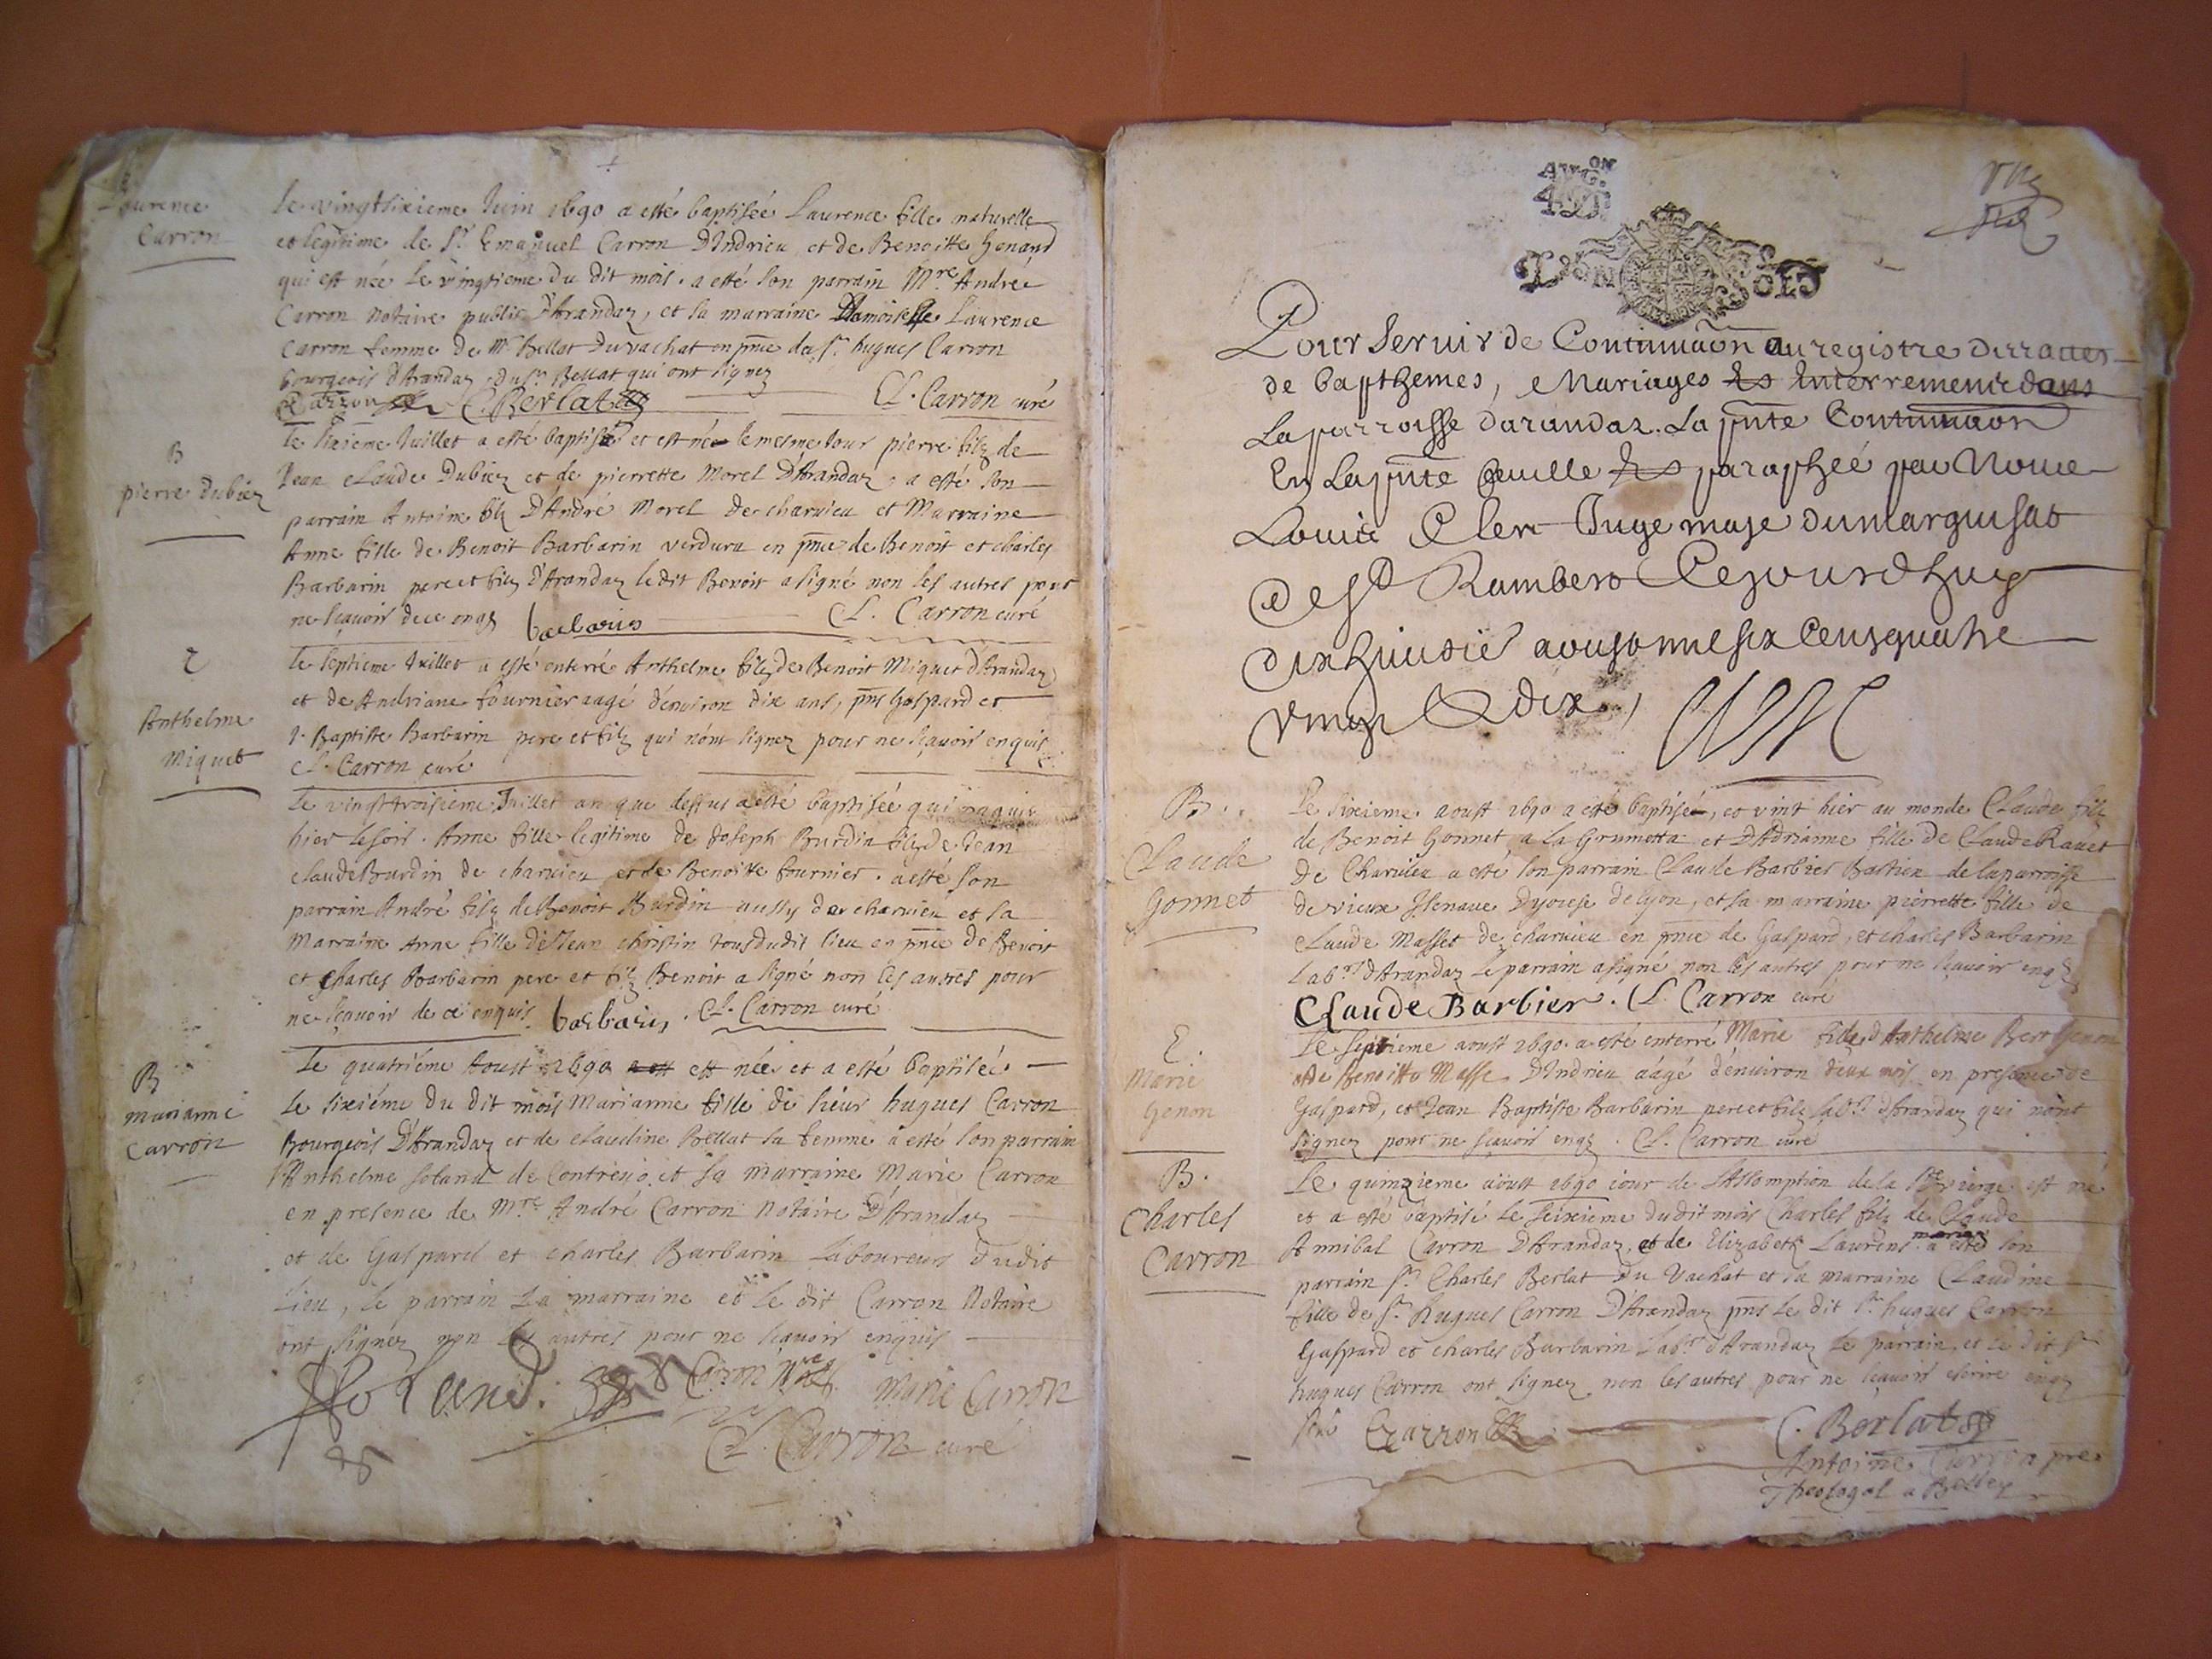 Laurence
Carron
Le vingtsixieme Juin 1690 a esté baptisée Laurence fille naturelle
et legitime de Sr. Emanuel Carron D'Indrieu et de Benoitte Genand
qui est née le vingtieme du dit mois. a esté son parrain Mre. André
Carron notaire public d'Arandaz, et sa marraine Damoiselle Laurence
Carron femme de Mr Bellat du vachat en pnce du Sr. hugues Carron
bourgeois d'Arandaz, du Sr. Bellat qui ont signez
Carron C. Berlat Cl. Carron curé
B
pierre Dubiez
Le sixieme Juillet a esté baptisé et est né le mesme Jour pierre filz de
Jean Claude Dubiez et de pierrette Morel D'Arandaz, a esté son
parrain Antoine filz D'André Morel de charvieu et Marraine
Anne fille de Benoit Barbarin verdura en pnce de Benoit et charles
Barbarin pere et filz d'Arandaz le dit Benoit a signé non les autres pour
ne sçavoir de ce enqs barbarin Cl. Carron curé
Anthelme
Miquet
Le septieme Juillet a esté enterré Anthelme filz de Benoit Miquet d'Arandaz
et de Andriane fournier aagé d'environ dix ans, pns Gaspard et
J. Baptiste Barbarin pere et filz qui n'ont signez pour ne sçavoir enquis
Cl. Carron curé
Le vingttroisieme Juillet an que dessus a esté baptisée qui naquit
hier le soir. Anne fille legitime de Joseph Burdin filz de Jean
Claude Burdin de charvieu et de Benoitte fournier. a esté son
parrain André filz de Benoit Burdin aussy de charvieu et sa
Marraine Anne fille de Jean christin tous dudit lieu en pnce de Benoit
et charles Barbarin pere et filz Benoit a signé non les autres pour
ne sçavoir de ce enquis barbarin. Cl. Carron curé
B
marianne
Carron
Le quatriéme Aoust 1690 est née et a esté baptisée
le sixiéme du dit mois Marianne fille de sieur hugues Carron
Bourgeois D'Arandaz et de Claudine Bellat sa femme a esté son parrain
Anthelme Soland de Contrevo. et sa marraine Marie Carron
en presence de Mre André Carron Notaire D'Arandaz
et de Gaspard et charles Barbarin Laboureurs dudit
Lieu, le parrain la marraine et le dit Carron Notaire
ont signez non les autres pour ne sçavoir enquis
Soland. Carron Nre Marie Carron
Cl. Carron curé
AVG.ON
LYON SOLS
Pour Servir de Continuaon au registre des actes
de bapthemes, Mariages et Enterrements dans
La parroisse darandaz. La pnte Continuaon
En La pnte feuille paraphée par Nous
Louis Clerc Juge maje du marquisat
de St Rambert Cejourdhuy
dixhuitie aoust mil six Cens quatre
vingt & dix,
B.
Claude
Gonnet
Le sixieme aoust 1690 a esté baptisé, et vint hier au monde Claude filz
de Benoit Gonnet a la Grumotta et D'Adrianne fille de Claude Ravet
de Charvieu a esté son parrain Claude Barbier Bastien de la parroisse
de vieux Isenave Dyocese de Lyon, et sa marraine pierrette fille de
Claude Masset de charvieu en pnce de Gaspard, et charles Barbarin
Labrs d'Arandaz le parrain a signé non les autres pour ne sçavoir enqs
CLaude Barbier. Cl. Carron curé
E.
Marie
Genon
Le septieme aoust 1690. a esté enterré Marie fille d'Anthelme Bert Genon
et de Benoitte Masse D'Indrieu aagé d'environ deux mois en presence de
Gaspard, et Jean Baptiste Barbarin pere et filz Labrs d'Arandaz qui n'ont
signez pour ne sçavoir enqs. Cl. Carron curé
B.
Charles
Carron
Le quinzieme aoust 1690 jour de l'Assomption de la Ste vierge est né
et a esté baptisé le seixieme du dit mois Charles filz de Claude
Annibal Carron D'Arandaz, et de Elizabeth Laurent mariez a esté son
parrain Sr. Charles Berlat du Vachat et sa marraine Claudine
fille de Sr. Hugues Carron D'Arandaz pns le dit Sr. hugues Carron
Gaspard et charles Barbarin Labrs d'Arandaz le parrain, et le dit Sr
hugues Carron ont signez non les autres pour ne sçavoir escrire enqs
Carron C. Berlat
Antoine
Theologal a Belley